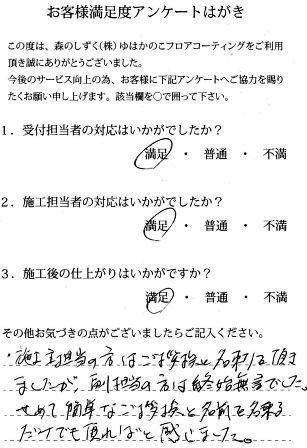 お客様満足度アンケートはがき
この度は、森のしずく(株)ゆはかのこフロアコーティングをご利用
頂き誠にありがとうございました。
今後のサービス向上の為、お客様に下記アンケートへご協力を賜り
たくお願い申し上げます。該当欄を○で囲って下さい。
1．受付担当者の対応はいかがでしたか？
満足 ・ 普通 ・ 不満
2．施工担当者の対応はいかがでしたか？
満足 ・ 普通 ・ 不満
3．施工後の仕上がりはいかがですか？
満足 ・ 普通 ・ 不満
その他お気づきの点がございましたらご記入ください。
・施工主担当の方はご挨拶と名刺は頂き
ましたが、副担当の方は終始無言でした。
せめて簡単なご挨拶と名前を名乗る
だけでも頂ればと感じました。